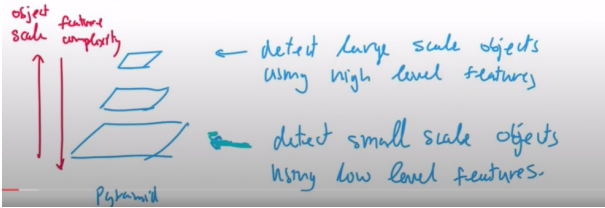 object
scale
feature
complexity
← detect large scale objects
using high level features
← detect small scale objects
using low level features.
Pyramid